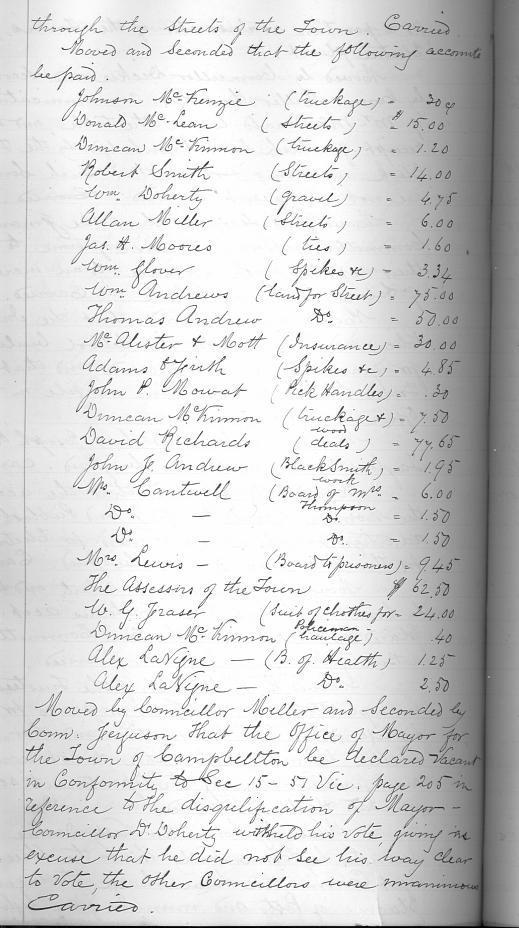 through the Streets of the Town. Carried.
Moved and Seconded that the following accounts
be paid.
Johnson McKenzie (truckage) = 30¢
Donald McLean (Streets) = $15.00
Duncan McKinnon (truckage) = 1.20
Robert Smith (Streets) = 14.00
Wm. Doherty (gravel) = 4.75
Allan Miller (Streets) = 6.00
Jas. H. Moores (ties) = 1.60
Wm. Glover (Spikes &c) = 3.34
Wm. Andrews (land for Street) = 75.00
Thomas Andrew Do. = 50.00
McAlister & Mott (Insurance) = 30.00
Adams & Firth (Spikes &c) = 4.85
John P. Mowat (Pick Handles) = .30
Duncan McKinnon (truckage & wood) = 7.50
David Richards (deals) = 77.65
John J. Andrew (BlackSmith work) = 1.95
Mrs. Cantwell (Board of Mrs. Thompson = 6.00
Do. — Do. = 1.50
Do. — Do. = 1.50
Mrs. Lewis — (Board to prisoners) = 9.45
The Assessors of the Town $62.50
W. G. Fraser (Suit of clothes for Policeman = 24.00
Duncan McKinnon (haulage) .40
Alex LaVigne — (B. of Health) 1.25
Alex LaVigne — Do. 2.50
Moved by Councillor Miller and Seconded by
Coun. Ferguson that the Office of Mayor for
the Town of Campbellton be declared Vacant
in Conformity to Sec 15 – 51 Vic. page 205 in
reference to the disqulification of Mayor –
Councillor Dr. Doherty withheld his vote, giving as
excuse that he did not see his way clear
to vote, the other Councillors were unanimous
Carried.